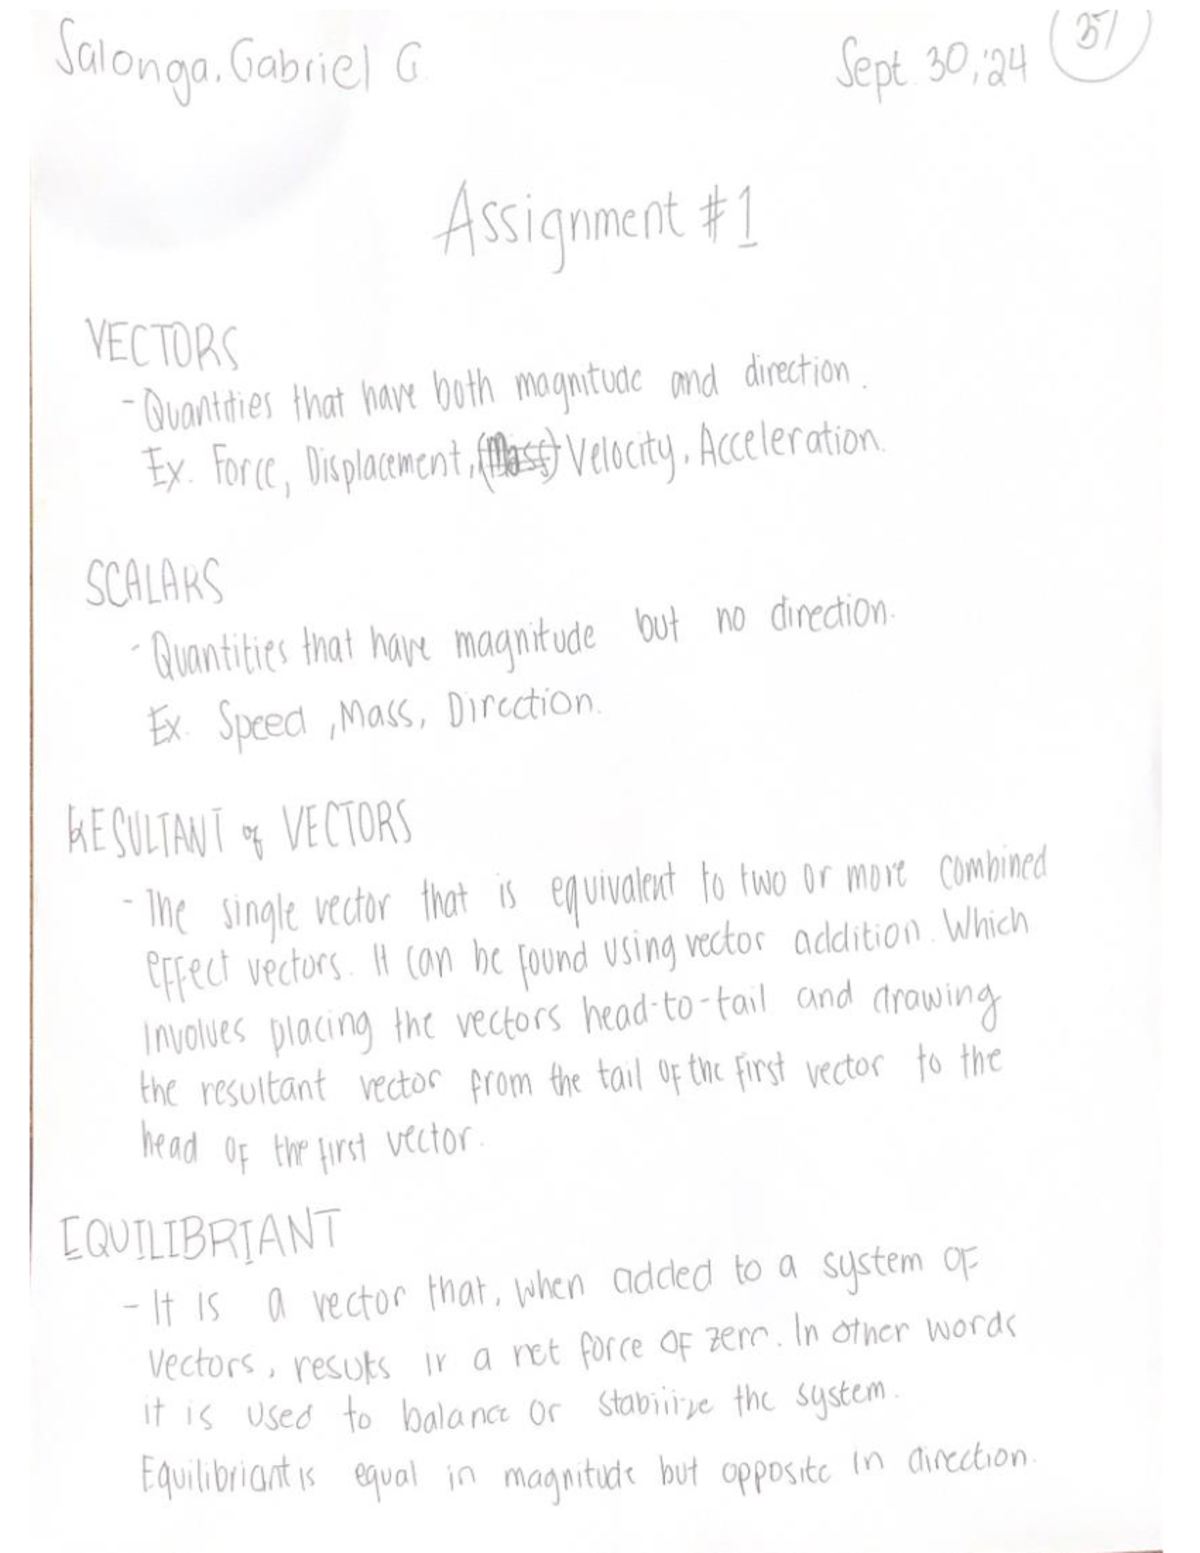 Salonga, Gabriel G. Sept. 30, '24
Assignment #1
VECTORS
- Quantities that have both magnitude and direction.
Ex. Force, Displacement, (Mass) Velocity, Acceleration.
SCALARS
- Quantities that have magnitude but no direction.
Ex. Speed, Mass, Direction.
RESULTANT of VECTORS
- The single vector that is equivalent to two or more combined
effect vectors. It can be found using vector addition. Which
involves placing the vectors head-to-tail and drawing
the resultant vector from the tail of the first vector to the
head of the first vector.
EQUILIBRIANT
- It is a vector that, when added to a system of
vectors, results in a net force of zero. In other words
it is used to balance or stabilize the system.
Equilibriant is equal in magnitude but opposite in direction.